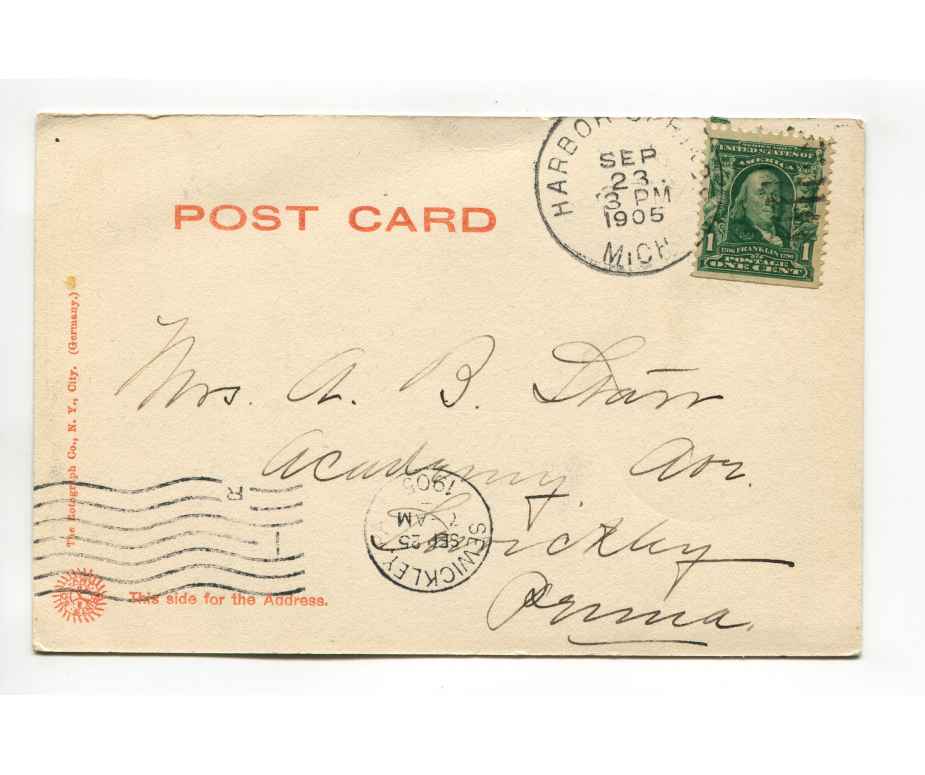 POST CARD
HARBOR SPRINGS
SEP
23
3 PM
1905
MICH
SERIES 1902
UNITED STATES OF
AMERICA
1 1706 FRANKLIN 1790 1
POSTAGE
ONE CENT
The Rotograph Co., N. Y., City. (Germany.)
Mrs. A. B. Starr
Academy Ave.
Sewickley
Penna.
SEWICKLEY
SEP 25
7 AM
1905
R
This side for the Address.